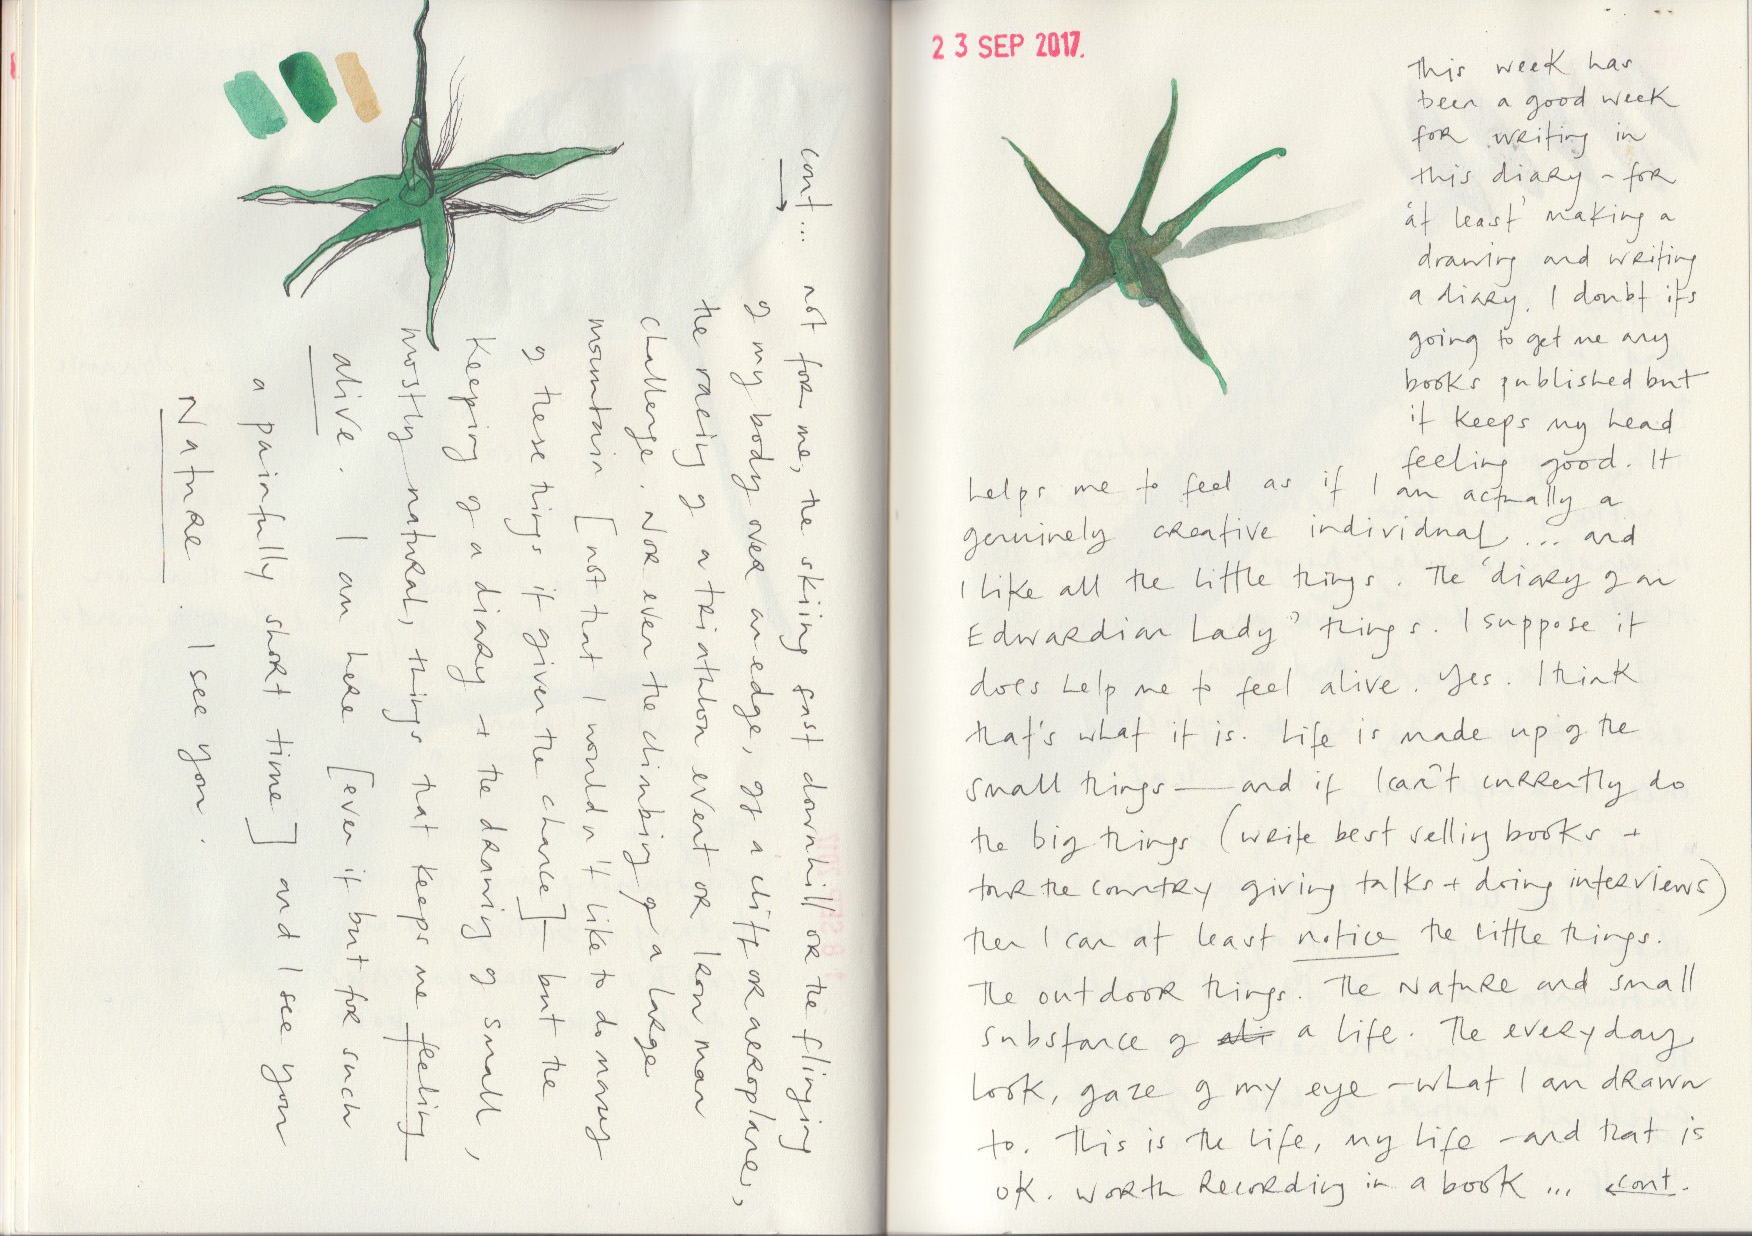 23 SEP 2017.
This week has
been a good week
for writing in
this diary - for
'at least' making a
drawing and writing
a diary. I doubt it's
going to get me any
books published but
it keeps my head
feeling good. It
helps me to feel as if I am actually a
genuinely creative individual... and
I like all the little things. The 'diary of an
Edwardian Lady' things. I suppose it
does help me to feel alive. Yes. I think
that's what it is. Life is made up of the
small things — and if I can't currently do
the big things (write best selling books +
tour the country giving talks + doing interviews)
then I can at least notice the little things.
The outdoor things. The Nature and small
substance of a life. The everyday
look, gaze of my eye - what I am drawn
to. This is the life, my life - and that is
ok. Worth recording in a book ... cont.
cont... not for me, the skiing fast downhill or the flinging
of my body over an edge, of a cliff or aeroplane,
the racing of a triathlon event or Iron man
challenge. Nor even the climbing of a large
mountain [not that I wouldn't like to do many
of these things if given the chance] — but the
keeping of a diary + the drawing of small,
mostly natural, things that keeps me feeling
alive. I am here [even if but for such
a painfully short time] and I see you
Nature. I see you.